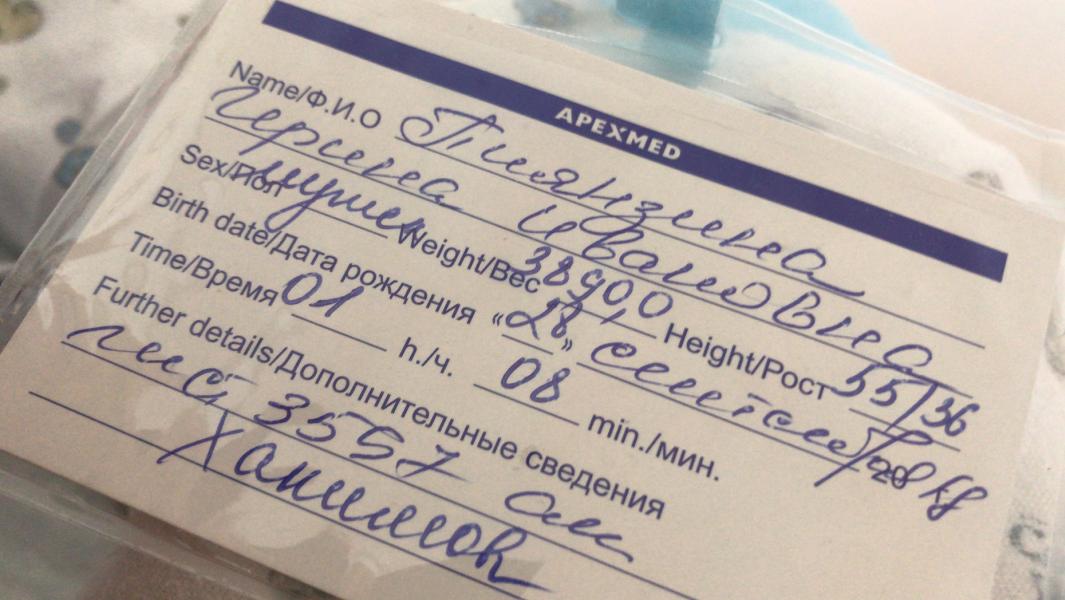 APEXMED
Name/Ф.И.О Пиянзина
Ивановна
Sex/Пол мужск Weight/Вес 3890,0 Height/Рост 55/36
Birth date/Дата рождения «28» сентября 20
Time/Время 01 h./ч. 08 min./мин.
Further details/Дополнительные сведения
3557